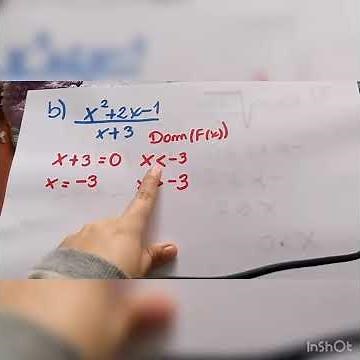 b) x²+2x-1
x+3
Dom (F(x))
x+3=0 x<-3
x=-3 -3
InShOt